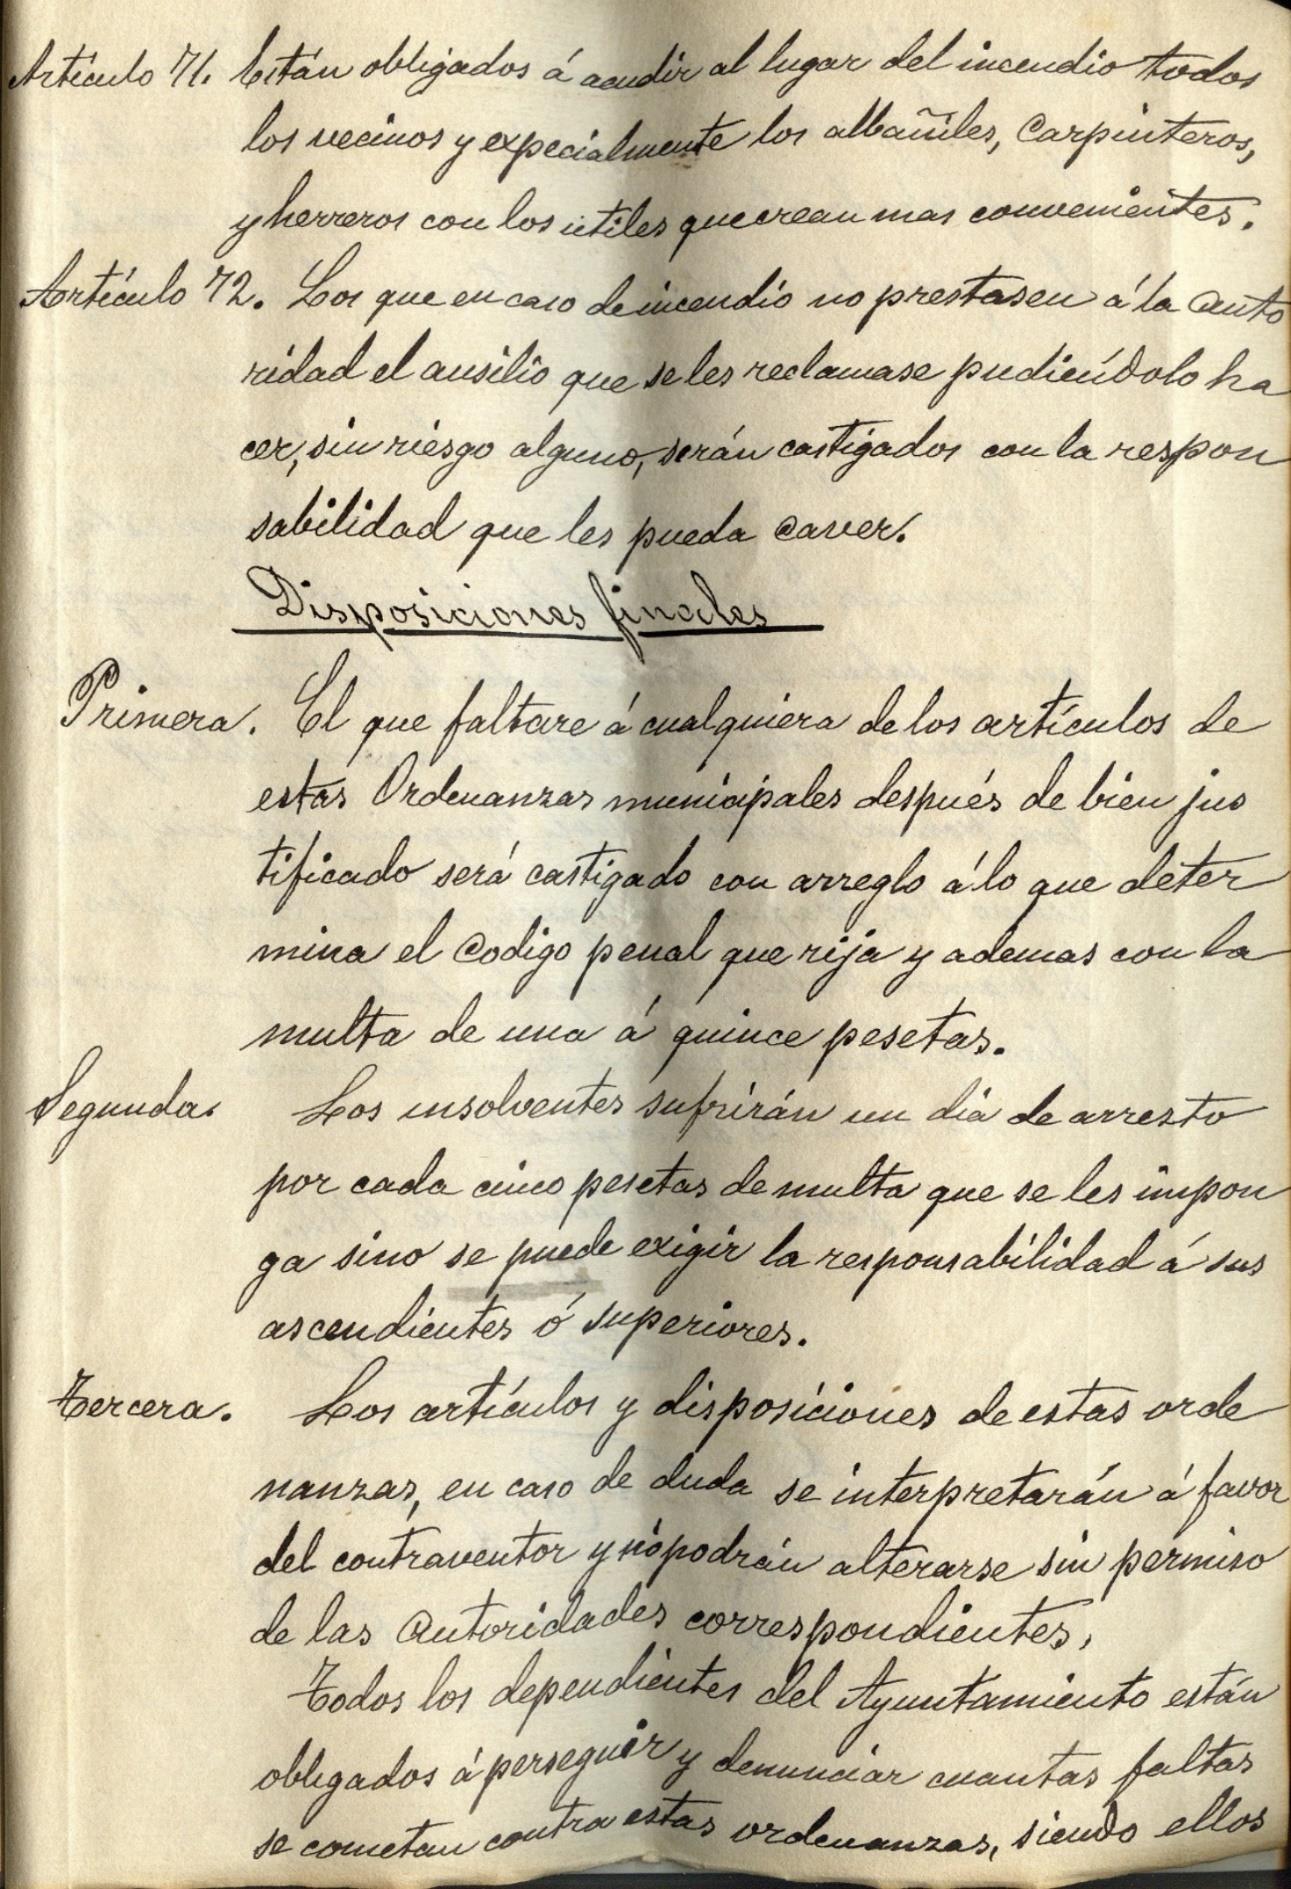 Artículo 71. Están obligados á acudir al lugar del incendio todos
los vecinos y expecialmente los albañiles, Carpinteros,
y herreros con los útiles que crean mas convenientes.
Artículo 72. Los que en caso de incendio no prestasen á la auto
ridad el ausilio que se les reclamase pudiéndolo ha
cer, sin riesgo alguno, serán castigados con la respon
sabilidad que les pueda caver.
Disposiciones finales
Primera. El que faltare á cualquiera de los artículos de
estas Ordenanzas municipales después de bien jus
tificado será castigado con arreglo á lo que deter
mina el Codigo penal que rija y ademas con la
multa de una á quince pesetas.
Segunda. Los insolventes sufrirán un día de arresto
por cada cinco pesetas de multa que se les impon
ga sino se puede exigir la responsabilidad á sus
ascendientes ó superiores.
Tercera. Los artículos y disposiciones de estas orde
nanzas, en caso de duda se interpretarán á favor
del contraventor y nó podrán alterarse sin permiso
de las autoridades correspondientes.
Todos los dependientes del Ayuntamiento están
obligados á perseguir y denunciar cuantas faltas
se cometan contra estas ordenanzas, siendo ellos